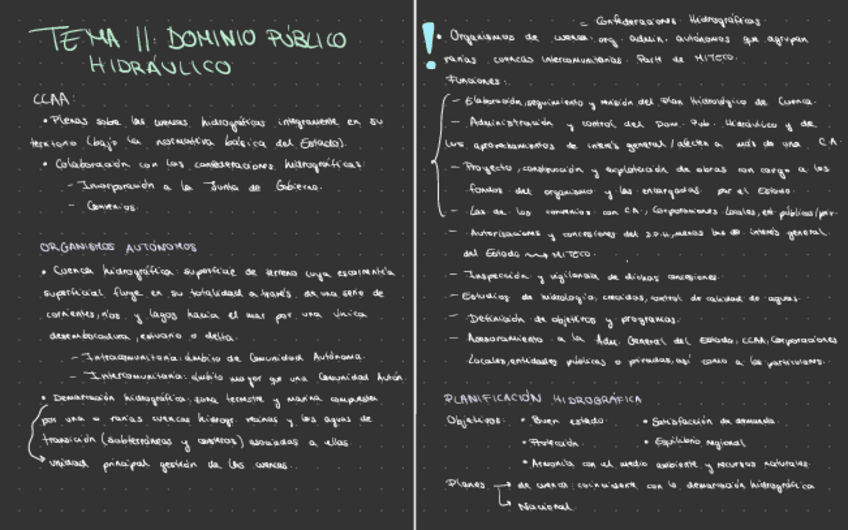 TEMA 11: DOMINIO PÚBLICO
HIDRÁULICO
CCAA:
• Plenas sobre las cuencas hidrográficas íntegramente en su
territorio (bajo la normativa básica del Estado).
• Colaboración con las confederaciones hidrográficas:
- Incorporación a la Junta de Gobierno.
- Convenios.
ORGANISMOS AUTÓNOMOS
• Cuenca hidrográfica: superficie de terreno cuya escorrentía
superficial fluye en su totalidad a través de una serie de
corrientes, ríos, y lagos hacia el mar por una única
desembocadura, estuario o delta.
- Intracomunitaria: ámbito de Comunidad Autónoma.
- Intercomunitaria: ámbito mayor que una Comunidad Autón.
• Demarcación hidrográfica: zona terrestre y marina compuesta
por una o varias cuencas hidrogr. vecinas y las aguas de
transición (subterráneas y costeras) asociadas a ellas
→ unidad principal gestión de las cuencas.
= Confederaciones Hidrográficas
! • Organismos de cuenca: org. admin. autónomos que agrupan
varias cuencas intercomunitarias. Parte de MITECO.
Funciones:
- Elaboración, seguimiento y revisión del Plan Hidrológico de Cuenca.
- Administración y control del Dom. Púb. Hidráulico y de
los aprovechamientos de interés general / afecten a más de una C.A.
- Proyecto, construcción y explotación de obras con cargo a los
fondos del organismo y las encargadas por el Estado.
- Las de los convenios con CA, Corporaciones Locales, ent. públicas/priv.
- Autorizaciones y concesiones del D.P.H, menos las de interés general
del Estado → MITECO.
- Inspección y vigilancia de dichas concesiones.
- Estudios de hidrología, crecidas, control de calidad de aguas.
- Definición de objetivos y programas.
- Asesoramiento a la Adm. General del Estado, CCAA, Corporaciones
Locales, entidades públicas o privadas, así como a los particulares.
PLANIFICACIÓN HIDROGRÁFICA
Objetivos: • Buen estado • Satisfacción de demanda
• Protección • Equilibrio regional
• Armonía con el medio ambiente y recursos naturales.
Planes → de cuenca: coincidente con la demarcación hidrográfica
↳ Nacional.